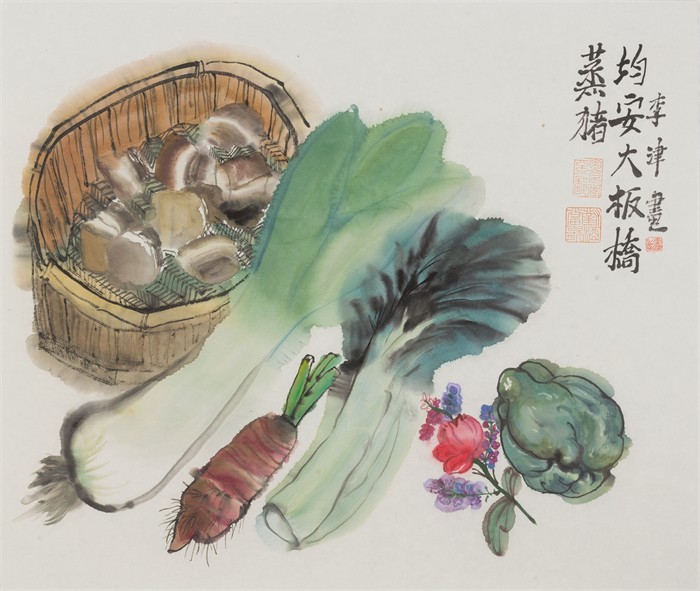 均安大板橋
蒸猪
李津畫